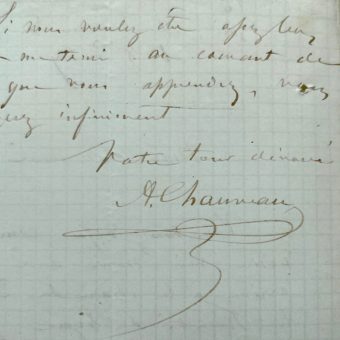 Si vous voulez être assez bon
me tenir au courant de
que vous apprendrez, vous
infiniment
Votre tout dévoué
A. Chauveau